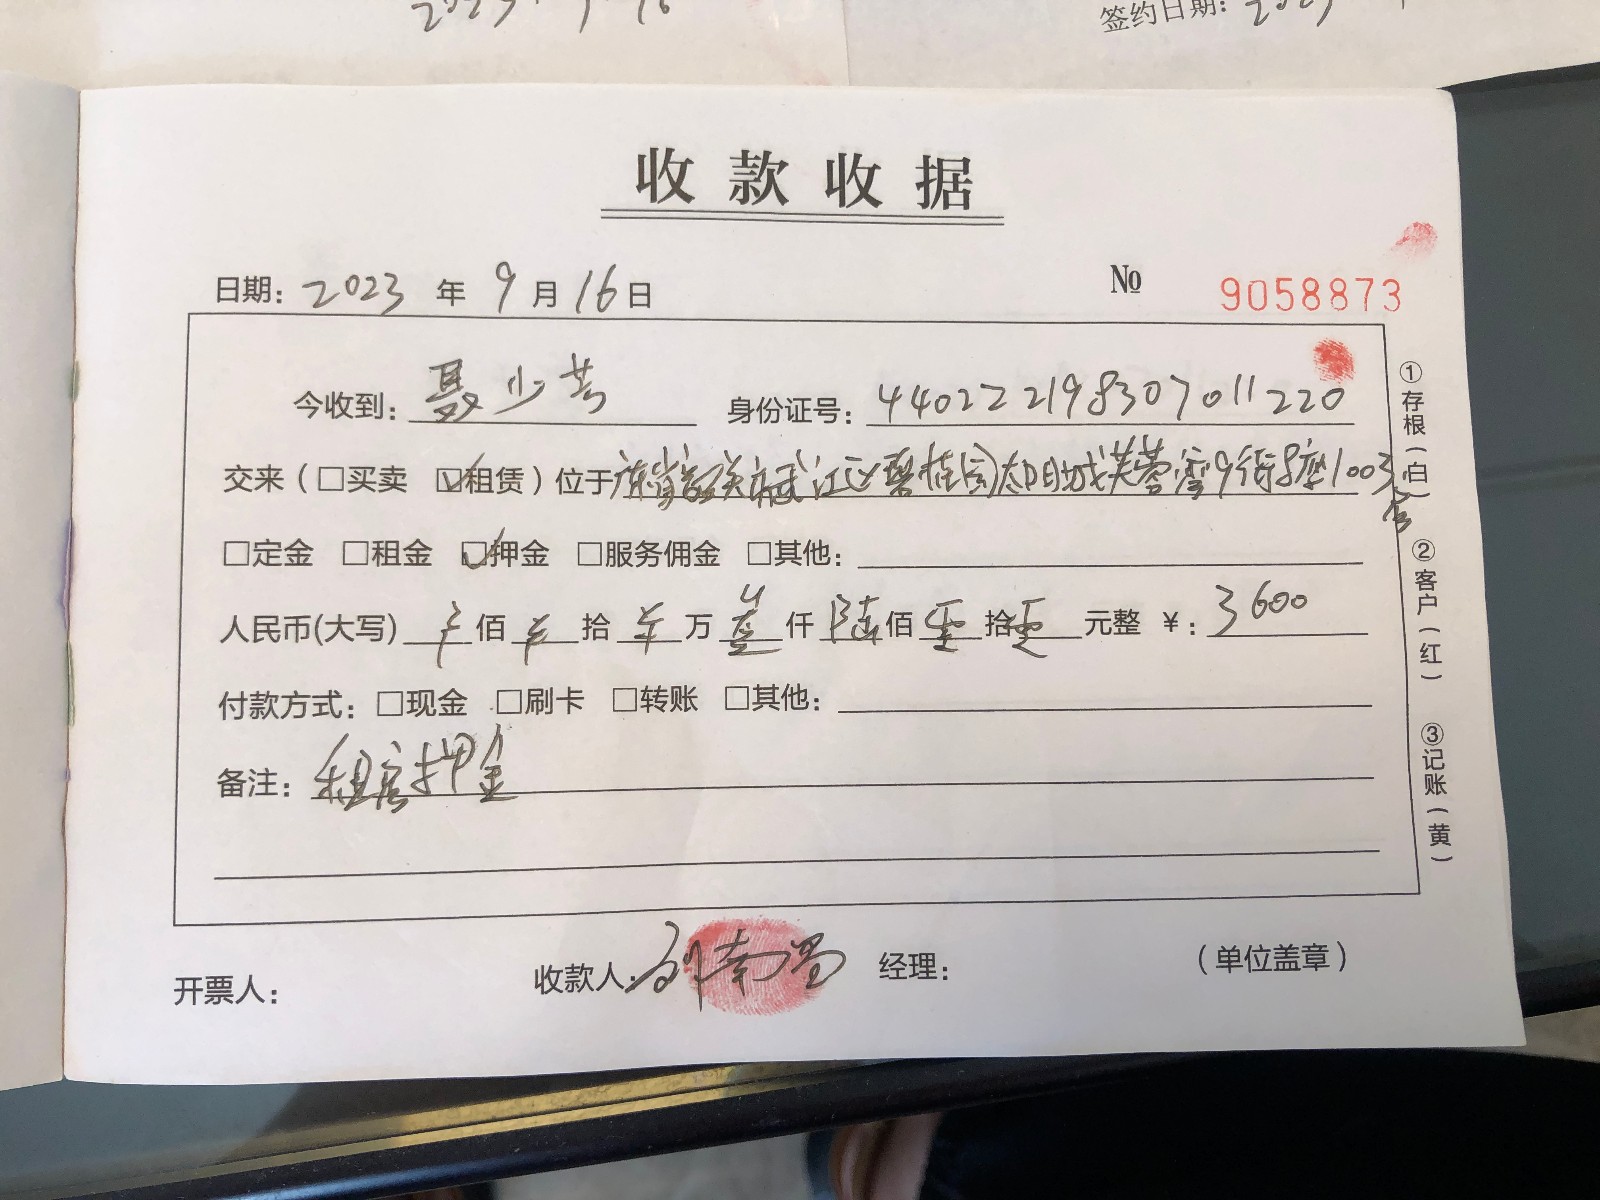 签约日期：
收款收据
日期：2023年9月16日 № 9058873
今收到：聂少芳 身份证号：440222198307011220
交来（□买卖 ☑租赁）位于广东省韶关市武江区碧桂园太阳城芙蓉湾9街8座1003房
□定金 □租金 ☑押金 □服务佣金 □其他：
人民币(大写) 佰 拾 万 叁仟陆佰零拾零元整 ￥：3600
付款方式：□现金 □刷卡 □转账 □其他：
备注：租房押金
开票人： 收款人： 南 经理： （单位盖章）
①存根（白）
②客户（红）
③记账（黄）